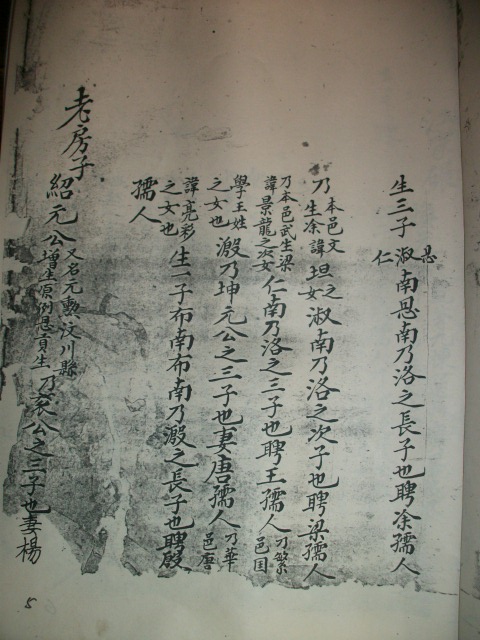 生三子恩淑仁南恩南乃洛之長子也聘凃孺人
乃本邑文生凃諱坦之女淑南乃洛之次子也聘梁孺人
乃本邑武生梁諱景龍之次女仁南乃洛之三子也聘王孺人乃繁邑囯
學王姓之女也乃坤元公之三子也妻唐孺人乃華邑唐
諱亮彩之女也生一子布南布南乃之長子也聘殷
孺人
老房子
紹元公又名元勳汶川縣增生例恩貢生乃公之三子也妻楊
5